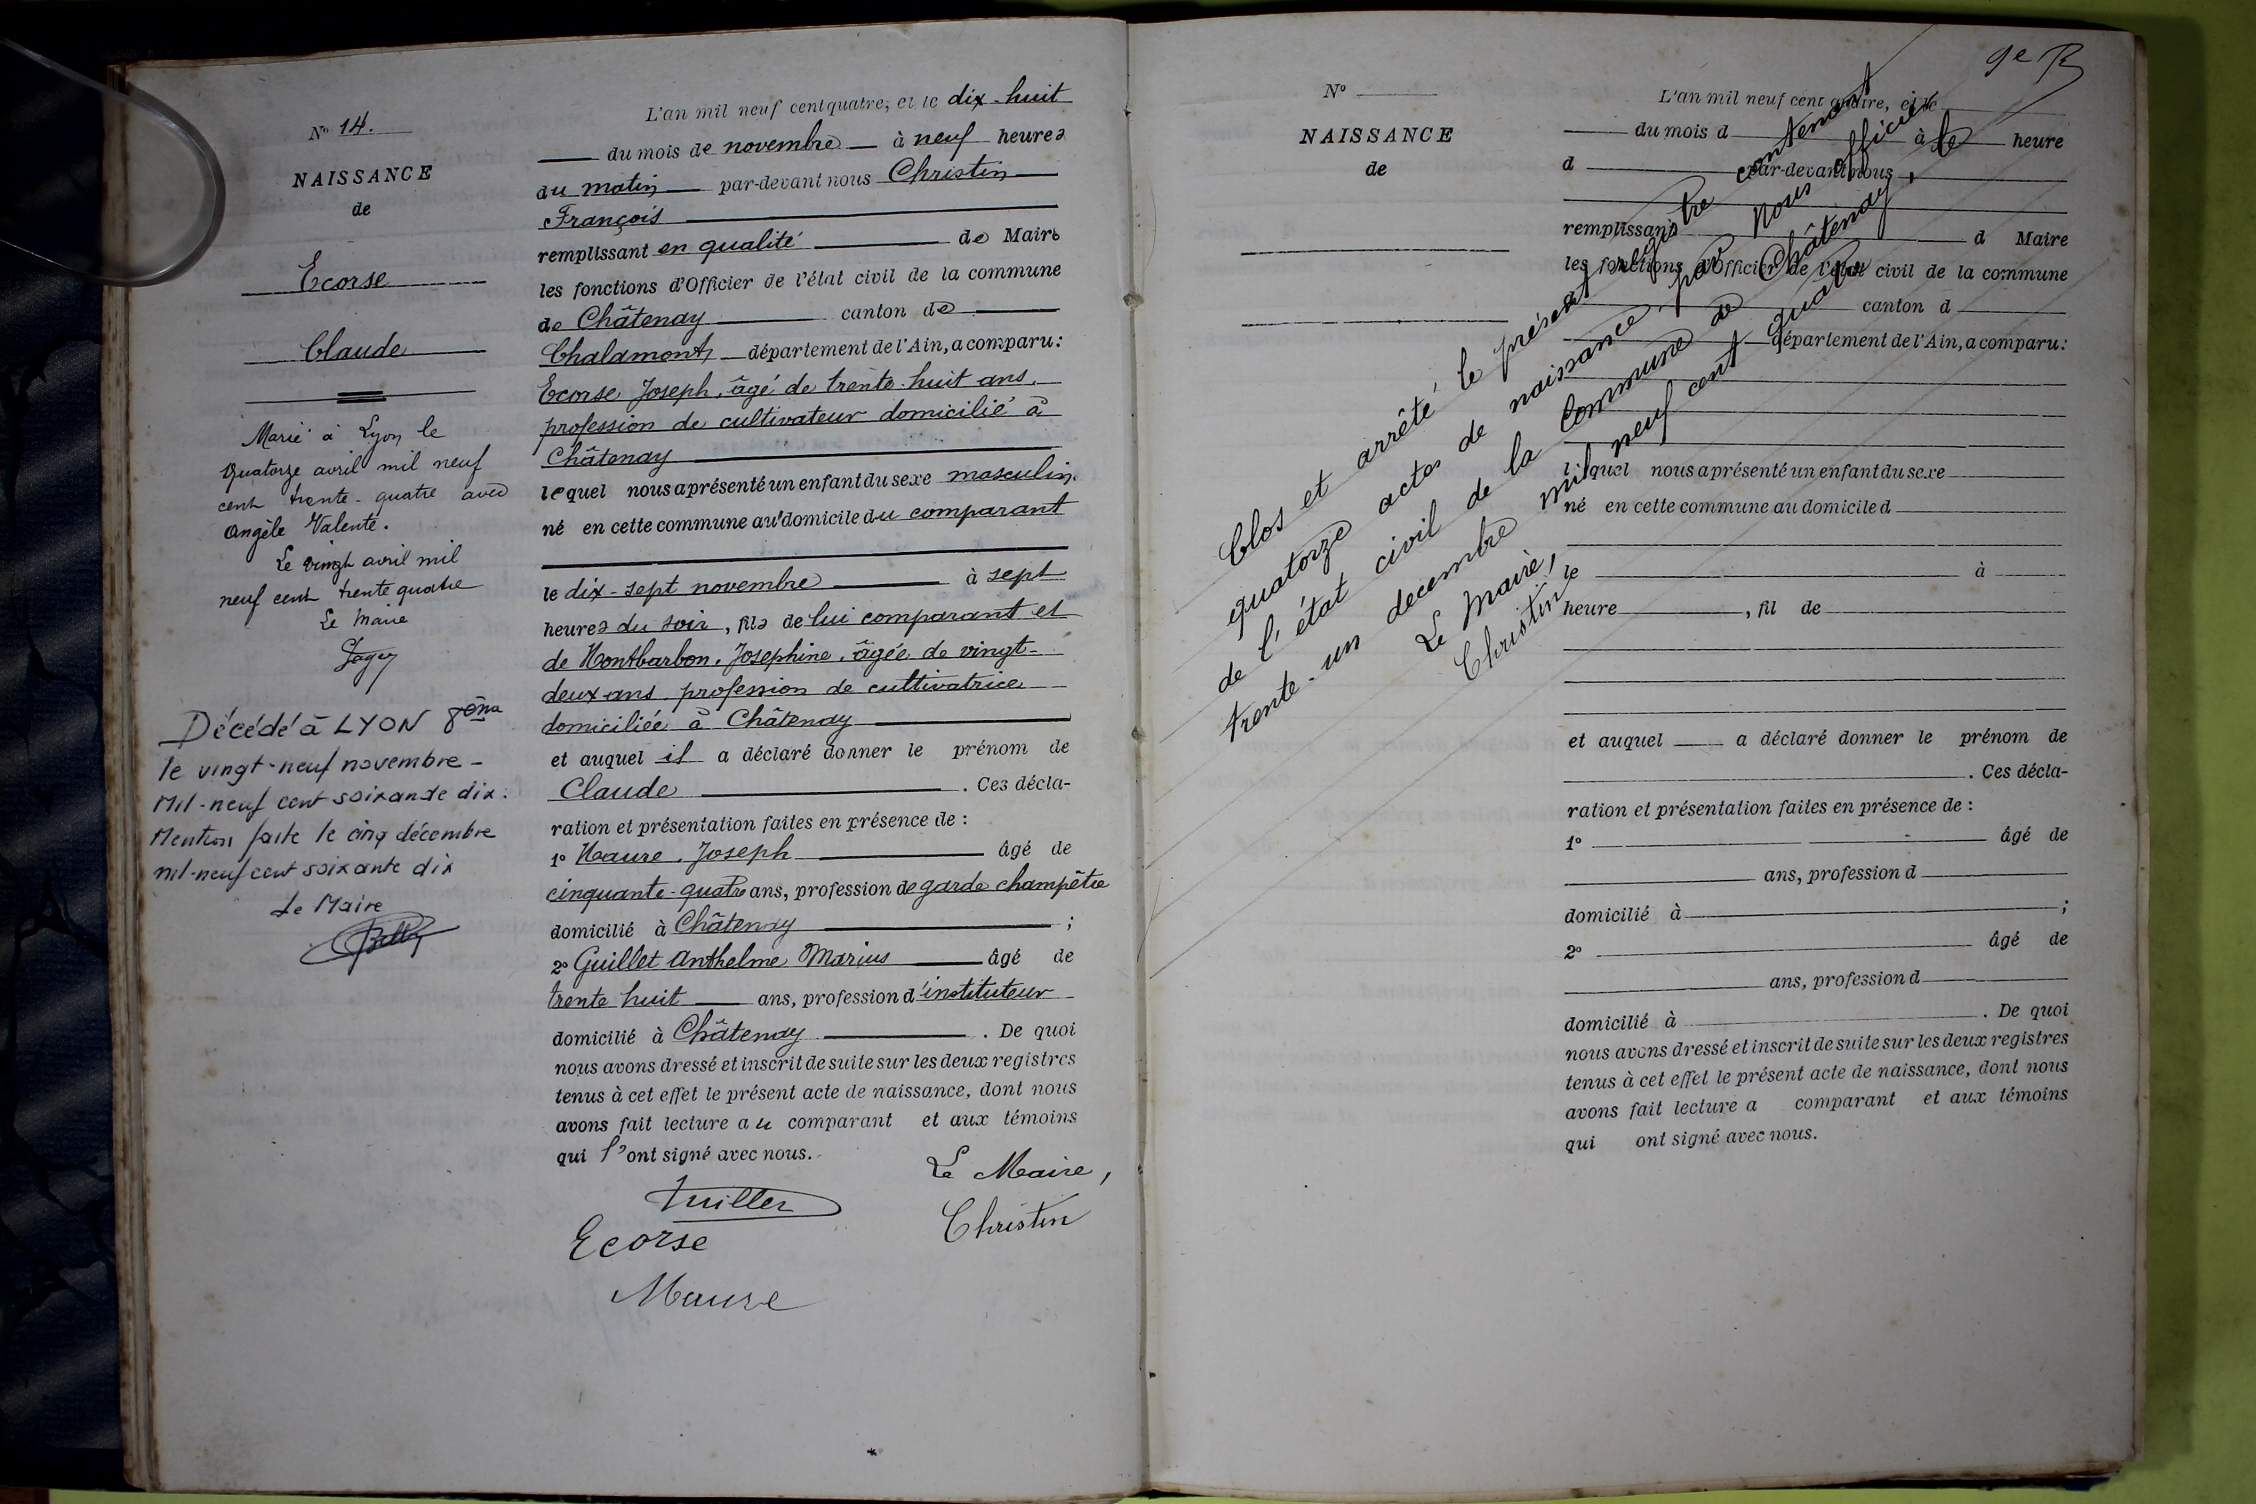 Nº 14.
NAISSANCE
de
Ecorse
Claude
Marié à Lyon le
quatorze avril mil neuf
cent trente-quatre avec
Angèle Valente.
Le vingt avril mil
neuf cent trente quatre
Le Maire
Décédé à LYON 8ème
le vingt-neuf novembre -
Mil-neuf cent soixante dix.
Mention faite le cinq décembre
mil-neuf cent soixante dix
Le Maire
L'an mil neuf cent quatre, et le dix-huit
du mois de novembre à neuf heures
du matin par-devant nous Christin
François
remplissant en qualité de Maire
les fonctions d'Officier de l'état civil de la commune
de Châtenay canton de
Chalamont département de l'Ain, a comparu:
Ecorse Joseph, âgé de trente-huit ans,
profession de cultivateur domicilié à
Châtenay
lequel nous a présenté un enfant du sexe masculin.
né en cette commune au domicile du comparant
le dix-sept novembre à sept
heures du soir, fils de lui comparant et
de Montbarbon, Josephine, âgée de vingt-
deux ans, profession de cultivatrice
domiciliée à Châtenay
et auquel il a déclaré donner le prénom de
Claude. Ces décla-
ration et présentation faites en présence de :
1º Maure, Joseph âgé de
cinquante-quatre ans, profession de garde champêtre
domicilié à Châtenay ;
2º Guillet Anthelme Marius âgé de
trente huit ans, profession d'instituteur
domicilié à Châtenay. De quoi
nous avons dressé et inscrit de suite sur les deux registres
tenus à cet effet le présent acte de naissance, dont nous
avons fait lecture au comparant et aux témoins
qui l'ont signé avec nous.
Le Maire,
Ecorse
Christin
Maure
Nº
NAISSANCE
de
L'an mil neuf cent quatre, et le
du mois d à heure
d par-devant nous
remplissant d Maire
les fonctions d'Officier de l'état civil de la commune
canton d
département de l'Ain, a comparu:
lequel nous a présenté un enfant du sexe
né en cette commune au domicile d
le à
heure, fil de
et auquel a déclaré donner le prénom de
. Ces décla-
ration et présentation faites en présence de :
1º âgé de
ans, profession d
domicilié à ;
2º âgé de
ans, profession d
domicilié à . De quoi
nous avons dressé et inscrit de suite sur les deux registres
tenus à cet effet le présent acte de naissance, dont nous
avons fait lecture a comparant et aux témoins
qui ont signé avec nous.
Clos et arrêté le présent registre contenant
quatorze actes de naissance par nous officier
de l'état civil de la Commune de Châtenay, le
trente-un decembre mil neuf cent quatre
Le Maire,
Christin